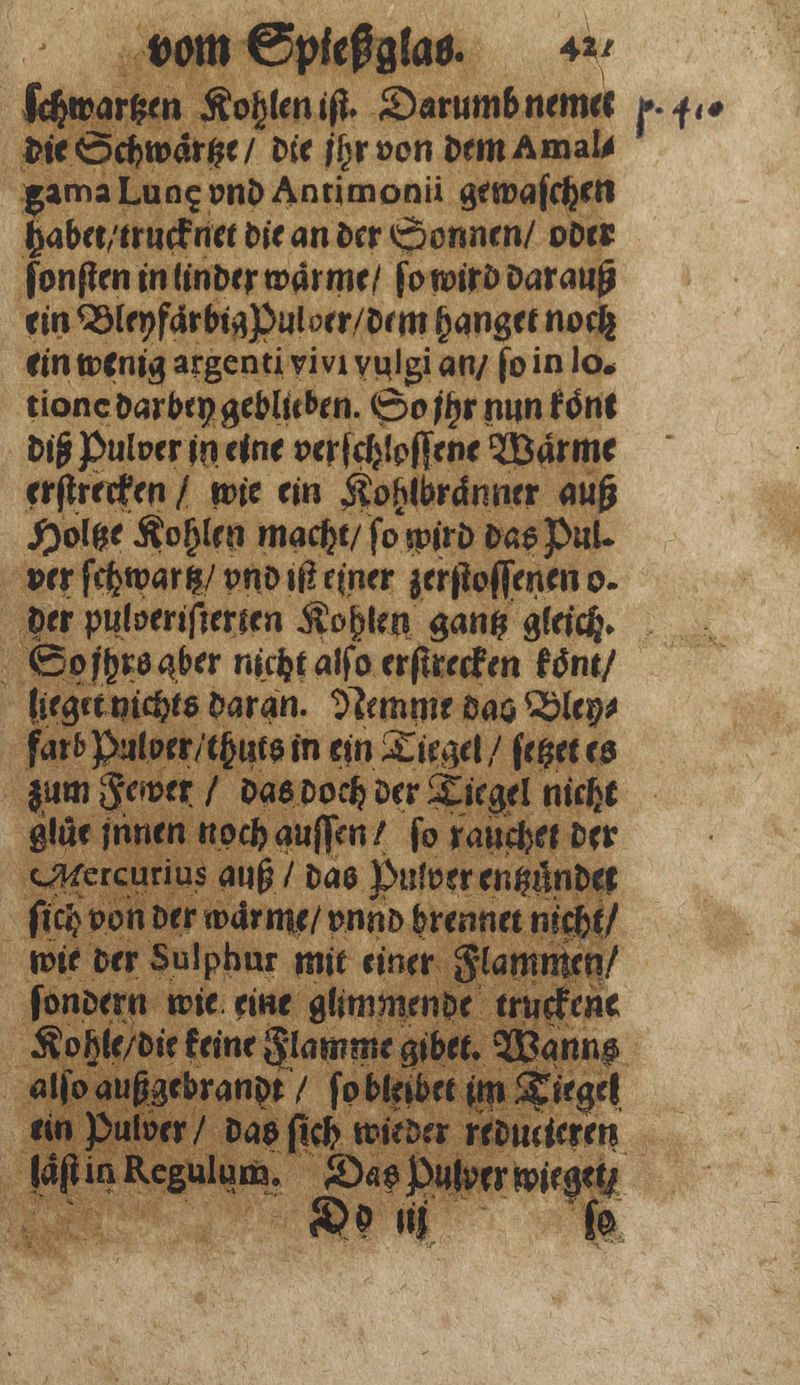 vom Spießglas. 421
schwartzen Kohlen ist. Darumb nemet p. 410
die Schwårtze / die jhr von dem Amal⸗
gama Lunę vnd Antimonii gewaschen
habet/trucknet die an der Sonnen/ oder
sonsten in linder wårme/ so wird darauß
ein Bleyfårbig Pulver/dem hanget noch
ein wenig argenti vivi vulgi an/ so in lo-
tione darbey geblieben. So jhr nun kônt
diß Pulver in eine verschlossene Wårme
erstrecken / wie ein Kohlbrånner auß
Holtze Kohlen macht/ so wird das Pul-
ver schwartz/ vnd ist einer zerstossenen o-
der pulverisierten Kohlen gantz gleich.
So jhrs aber nicht also erstrecken kônt/
lieget nichts daran. Nemme das Bley⸗
farb Pulver/thuts in ein Tiegel / setzet es
zum Fewer / das doch der Tiegel nicht
glûe jnnen noch aussen/ so rauchet der
Mercurius auß / das Pulver entzûndet
sich von der wårme/ vnnd brennet nicht/
wie der Sulphur mit einer Flammen/
sondern wie eine glimmende truckene
Kohle/die keine Flamme gibet. Wanns
also außgebrandt / so bleibet im Tiegel
ein Pulver / das sich wieder reducieren
låst in Regulum. Das Pulver wieget/
Dd iij so